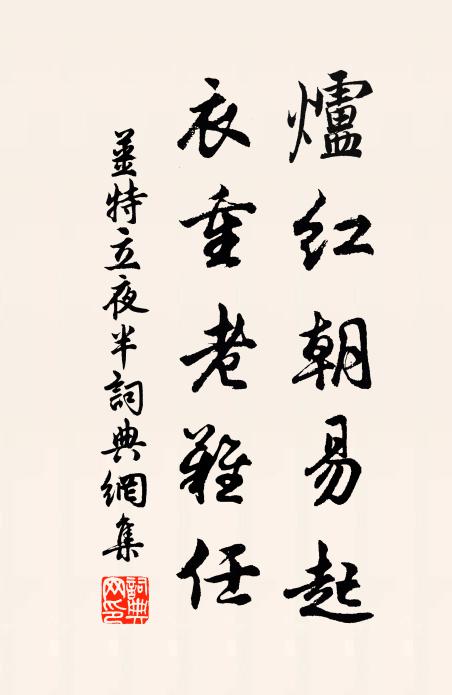 爐紅朝易起
衣重老難任
姜特立夜半詞典網集
詞典網印